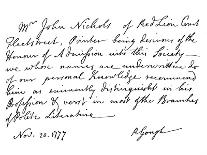 Mr John Nichols of Red Lion Court
Fleetstreet, Printer being desirous of the
Honour of Admission into this Society
we whose names are underwritten do
of our personal Knowledge recommend
him as eminently distinguish'd in his
Profession & vers'd in most of the Branches
of Polite Literature
Nov. 20. 1777 R Gough